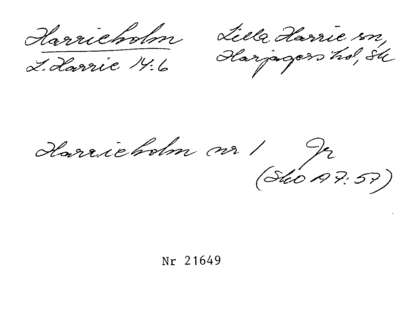 Harrieholm
Lilla Harrie sn,
L. Harrie 14:6
Harjagers hd, Sk
Harrieholm nr 1 Jr
(SkO A7:57)
Nr 21649